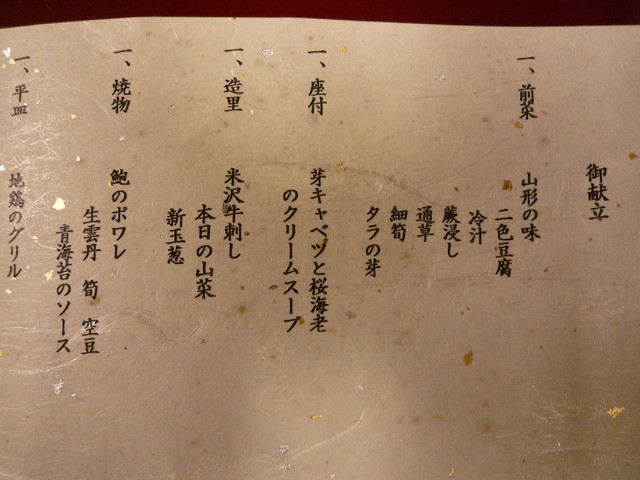 御献立
一、前菜 山形の味
二色豆腐
冷汁
蕨浸し
通草
細筍
タラの芽
一、座付 芽キャベツと桜海老
のクリームスープ
一、造里 米沢牛刺し
本日の山菜
新玉葱
一、焼物 鮑のポワレ
生雲丹 筍 空豆
青海苔のソース
一、平皿 地鶏のグリル